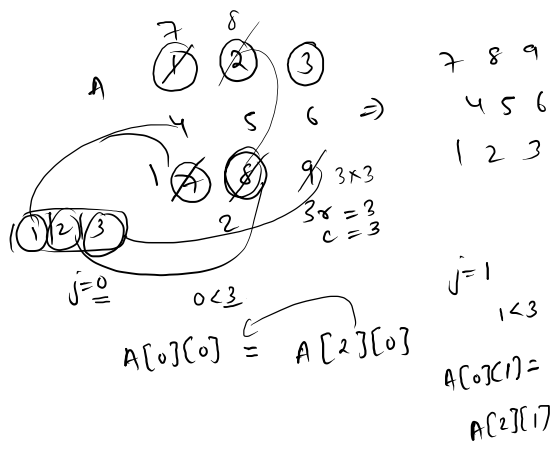 7 8
1 2 3
A
4 5 6 =>
1 7 8 9 3x3
2
3r = 3
c = 3
1 2 3
j=0
0<3
A[0][0] = A[2][0]
7 8 9
4 5 6
1 2 3
j=1
1<3
A[0][1] =
A[2][1]